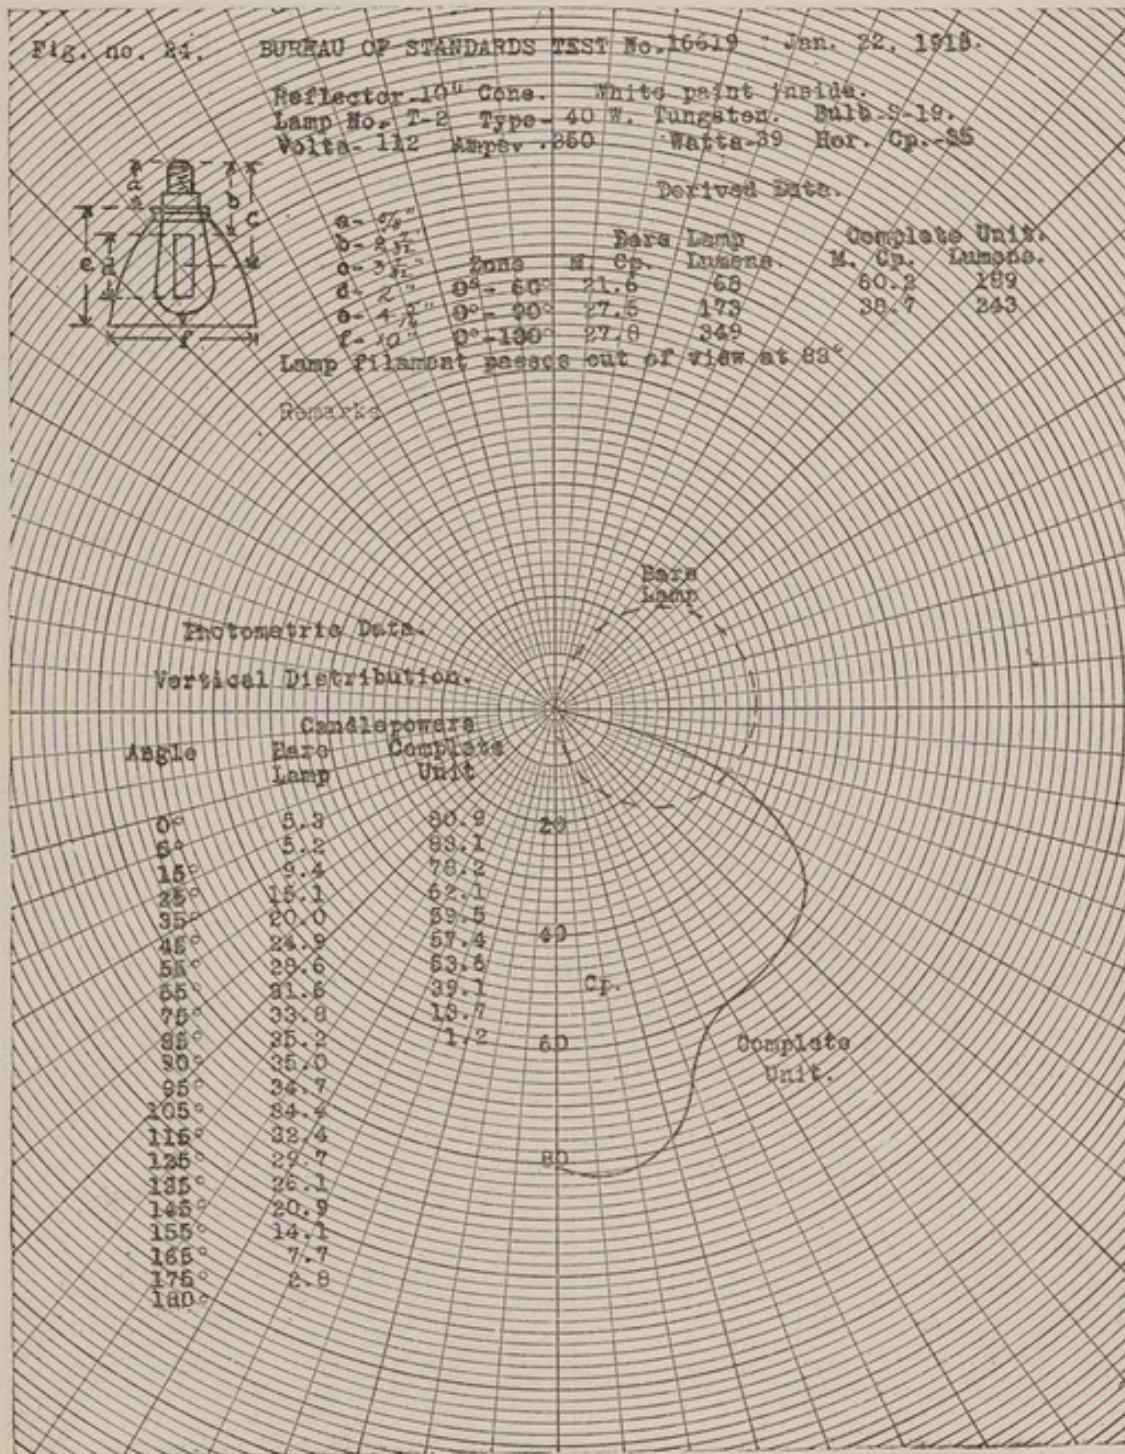 Fig. no. 24. BUREAU OF STANDARDS TEST No. 16619 Jan. 22, 1918.
Reflector-10" Cone. White paint inside.
Lamp No. T-2 Type- 40 W. Tungsten. Bulb-S-19.
Volts- 112 Amps. .350 Watts-39 Hor. Cp.-35
Derived Data.
a b c d e f
a-
b- 2
c- 3
d- 2"
e- 4
f- 10"
Bare Lamp Complete Unit.
Zone M. Cp. Lumens. M. Cp. Lumens.
0°- 60° 21.6 68 60.2 189
0°- 90° 27.5 173 38.7 243
0°-180° 27.8 349
Lamp filament passes out of view at 83°
Remarks
Bare
Lamp
Photometric Data.
Vertical Distribution.
Candlepowers
Angle Bare Complete
Lamp Unit
0° 5.3 80.9
5° 5.2 83.1
15° 9.4 78.2
25° 15.1 62.1
35° 20.0 59.5
45° 24.9 57.4
55° 28.6 53.6
65° 31.6 39.1
75° 33.8 13.7
85° 35.2 1.2
90° 35.0
95° 34.7
105° 34.4
115° 32.4
125° 29.7
135° 26.1
145° 20.9
155° 14.1
165° 7.7
175° 2.8
180°
20
40
Cp.
60
80
Complete
Unit.